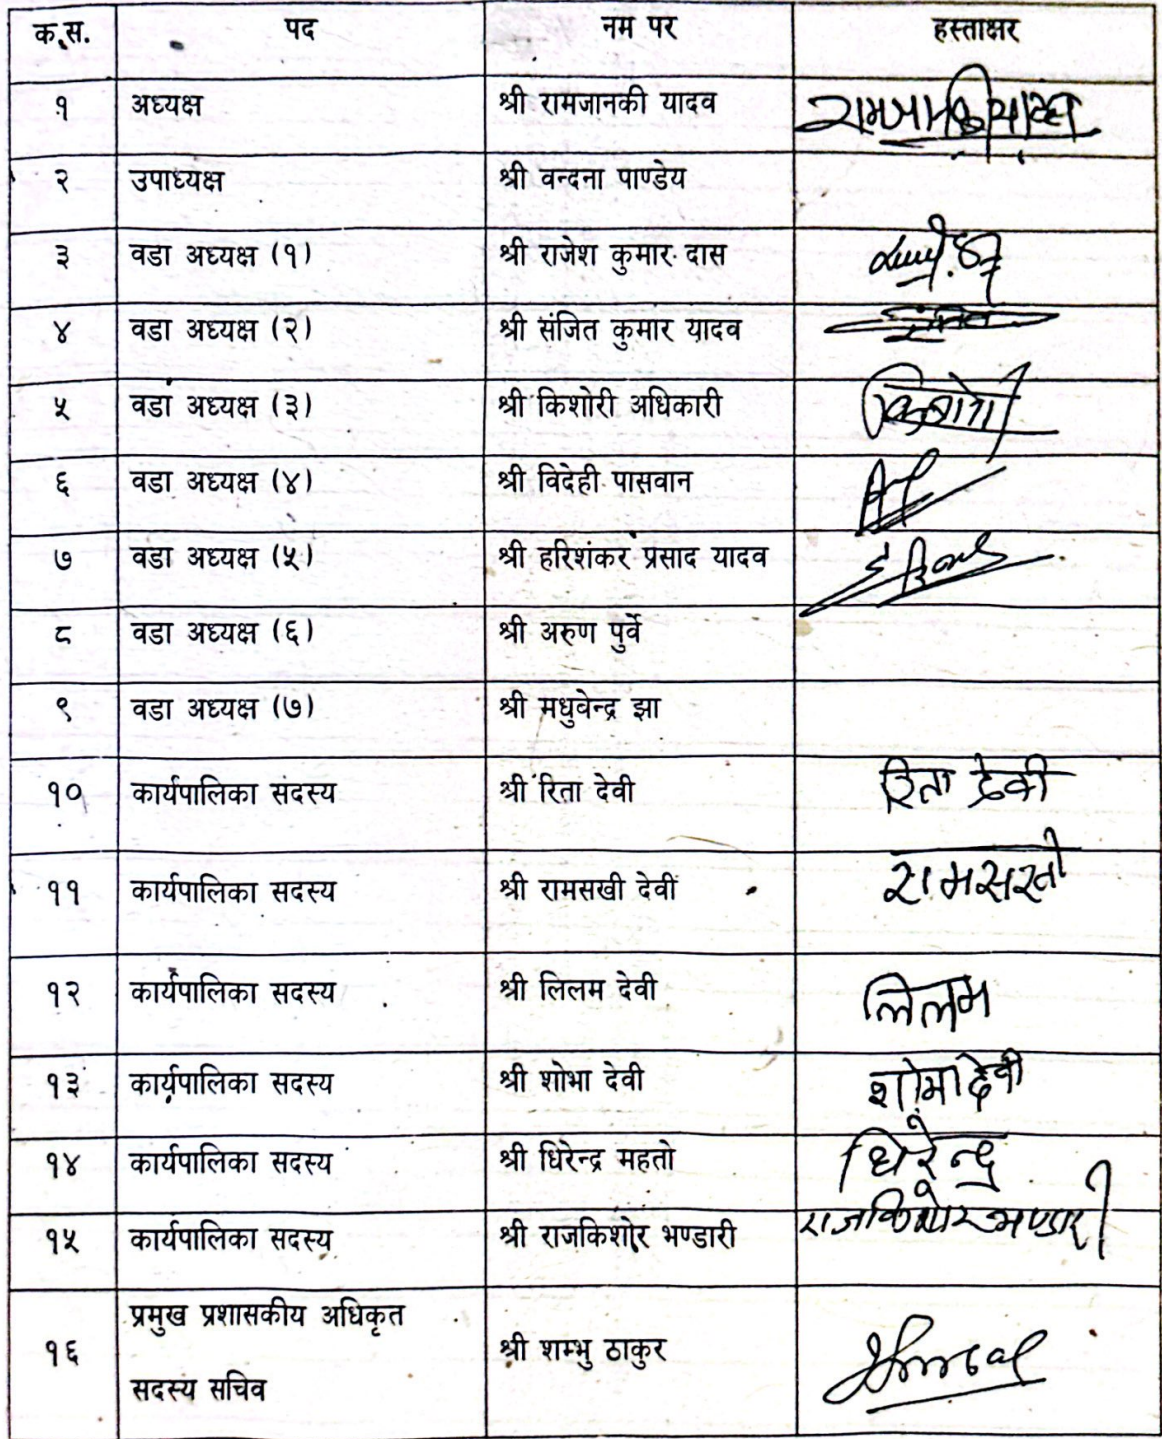 क.स. पद नम पर हस्ताक्षर
१ अध्यक्ष श्री रामजानकी यादव रामजानकि यादव
२ उपाध्यक्ष श्री वन्दना पाण्डेय
३ वडा अध्यक्ष (१) श्री राजेश कुमार दास
४ वडा अध्यक्ष (२) श्री संजित कुमार यादव
५ वडा अध्यक्ष (३) श्री किशोरी अधिकारी किशोरी
६ वडा अध्यक्ष (४) श्री विदेही पासवान
७ वडा अध्यक्ष (५) श्री हरिशंकर प्रसाद यादव
८ वडा अध्यक्ष (६) श्री अरुण पुर्वे
९ वडा अध्यक्ष (७) श्री मधुवेन्द्र झा
१० कार्यपालिका सदस्य श्री रिता देवी रिता देवी
११ कार्यपालिका सदस्य श्री रामसखी देवी रामसखी
१२ कार्यपालिका सदस्य श्री लिलम देवी लिलम
१३ कार्यपालिका सदस्य श्री शोभा देवी शोभा देवी
१४ कार्यपालिका सदस्य श्री धिरेन्द्र महतो धिरेन्द्र
१५ कार्यपालिका सदस्य श्री राजकिशोर भण्डारी राजकिशोर भण्डारी
प्रमुख प्रशासकीय अधिकृत
१६ श्री शम्भु ठाकुर
सदस्य सचिव